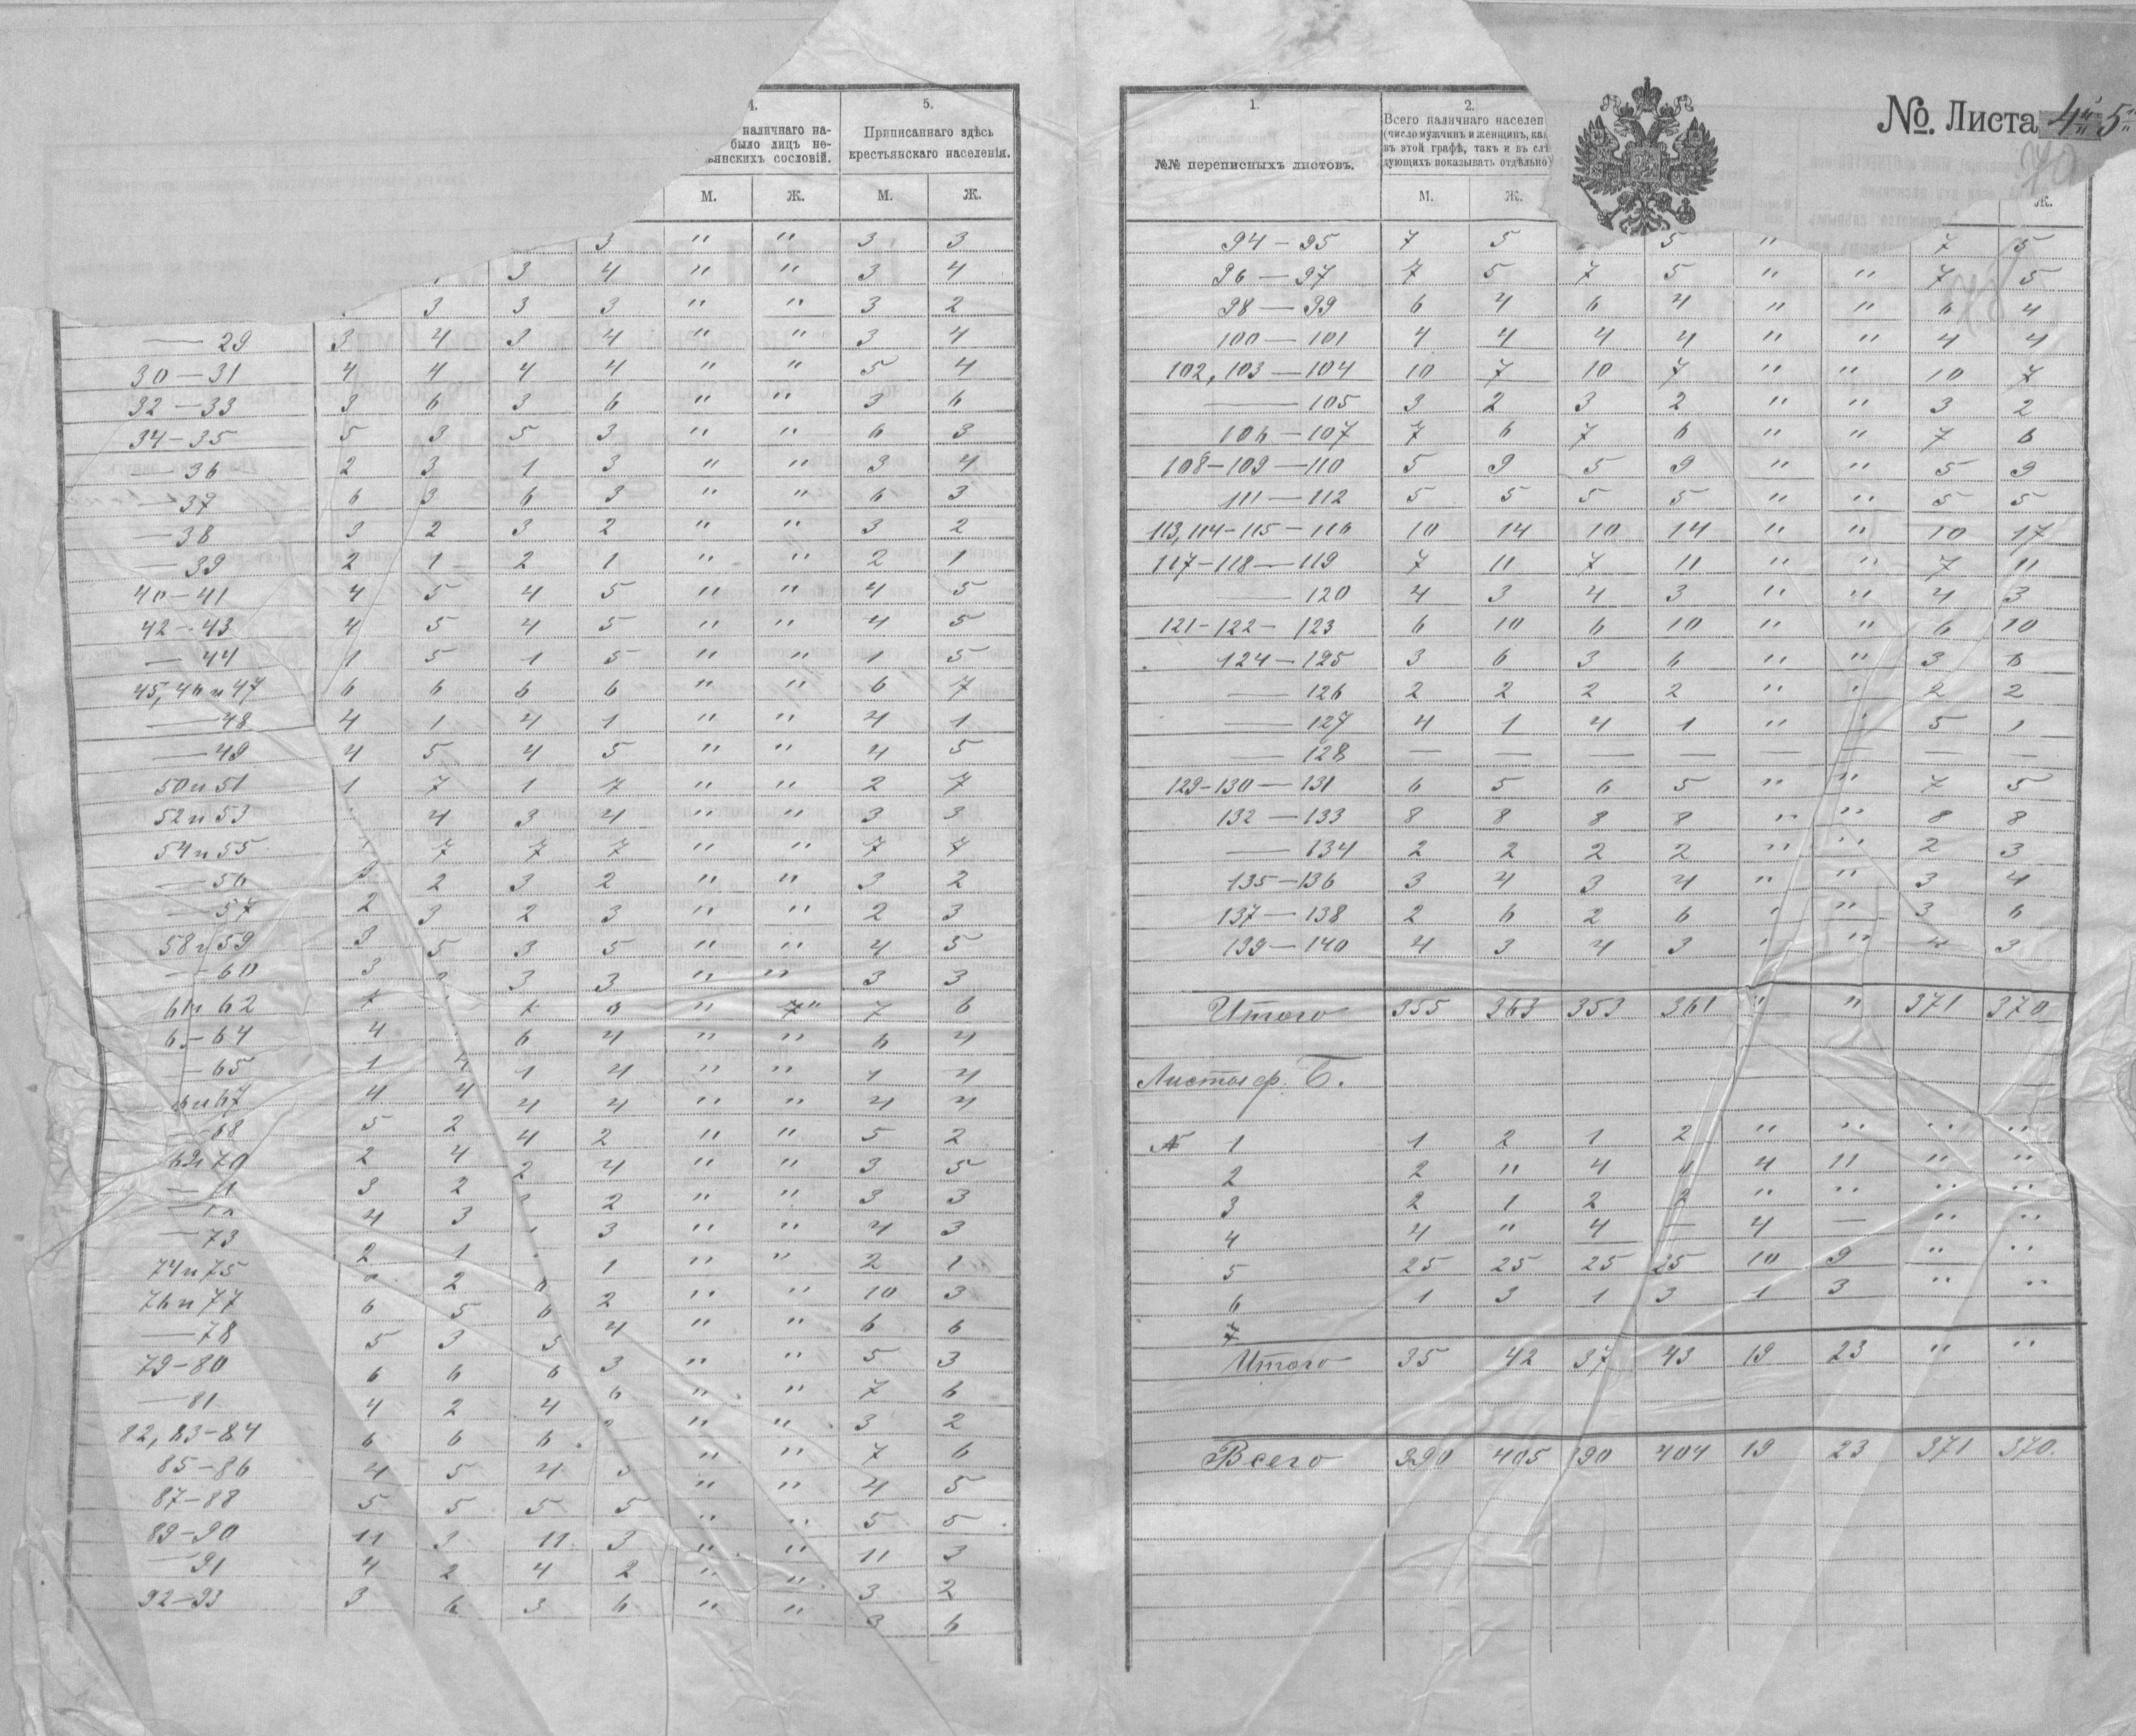 4.
наличнаго на-
было лицъ не-
янскихъ сословій.
5.
Приписаннаго здѣсь
крестьянскаго населенія.
М. Ж. М. Ж.
3 " " 3 3
3 4 " " 3 4
3 3 3 " " 3 2
— 29 3 4 3 4 " " 3 4
30 — 31 4 4 4 4 " " 5 4
32 — 33 3 6 3 6 " " 3 6
34 — 35 5 3 5 3 " " 6 3
— 36 2 3 1 3 " " 3 4
— 37 6 3 6 3 " " 6 3
— 38 3 2 3 2 " " 3 2
— 39 2 1 2 1 " " 2 1
40 — 41 4 5 4 5 " " 4 5
42 — 43 4 5 4 5 " " 4 5
— 44 1 5 1 5 " " 1 5
45, 46 и 47 6 6 6 6 " " 6 7
— 48 4 1 4 1 " " 4 1
— 49 4 5 4 5 " " 4 5
50 и 51 1 7 1 7 " " 2 7
52 и 53 4 3 4 " " 3 3
54 и 55 7 7 7 " " 7 7
— 56 3 2 3 2 " " 3 2
— 57 2 3 2 3 " " 2 3
58 и 59 3 5 3 5 " " 4 5
— 60 3 3 3 " " 3 3
61 и 62 " 7 6
— 64 4 6 4 " " 6 4
— 65 1 4 1 4 " " 1 4
и 67 4 4 4 4 " " 4 4
68 5 2 4 2 " " 5 2
69 и 70 2 4 2 4 " " 3 5
3 2 2 " " 3 3
4 3 3 " " 4 3
— 73 2 1 1 " " 2 1
74 и 75 2 2 " " 10 3
76 и 77 6 5 6 4 " " 6 6
— 78 5 3 5 3 " " 5 3
79 — 80 6 6 6 6 " " 7 6
— 81 4 2 4 " " 3 2
82, 83 — 84 6 6 6 " " 7 6
85 — 86 4 5 4 " " 4 5
87 — 88 5 5 5 5 " " 5 5
89 — 90 11 3 11 3 " " 11 3
— 91 4 2 4 2 " " 3 2
92 — 93 3 6 3 6 " " 3 6
№. Листа 4" 5"
1.
№№ переписныхъ листовъ.
2.
Всего наличнаго населен
(число мужчинъ и женщинъ, ка
въ этой графѣ, такъ и въ слѣ
дующихъ показывать отдѣльно)
М. Ж. Ж.
94 — 95 7 5 5 " 7 5
96 — 97 7 5 7 5 " " 7 5
98 — 99 6 4 6 4 " " 6 4
100 — 101 4 4 4 4 " " 4 4
102, 103 — 104 10 7 10 7 " " 10 7
— 105 3 2 3 2 " " 3 2
106 — 107 7 6 7 6 " " 7 6
108 — 109 — 110 5 9 5 9 " " 5 9
111 — 112 5 5 5 5 " " 5 5
113, 114 — 115 — 116 10 14 10 14 " " 10 17
117 — 118 — 119 7 11 7 11 " " 7 11
— 120 4 3 4 3 " " 4 3
121 — 122 — 123 6 10 6 10 " " 6 10
124 — 125 3 6 3 6 " " 3 6
— 126 2 2 2 2 " " 2 2
— 127 4 1 4 1 " " 5 1
— 128 — — — — — — — —
129 — 130 — 131 6 5 6 5 " " 7 5
132 — 133 8 8 8 8 " " 8 8
— 134 2 2 2 2 " " 2 3
135 — 136 3 4 3 4 " " 3 4
137 — 138 2 6 2 6 " " 3 6
139 — 140 4 3 4 3 " " 4 3
Итого 355 363 353 361 " " 371 370
Листы ф. Б.
№ 1 1 2 1 2 " " " "
2 2 " 4 11 4 11 " "
3 2 1 2 2 " " " "
4 4 " 4 — 4 — " "
5 25 25 25 25 10 9 " "
6 1 3 1 3 1 3 " "
7
Итого 35 42 37 43 19 23 " "
Всего 390 405 90 404 19 23 371 370.